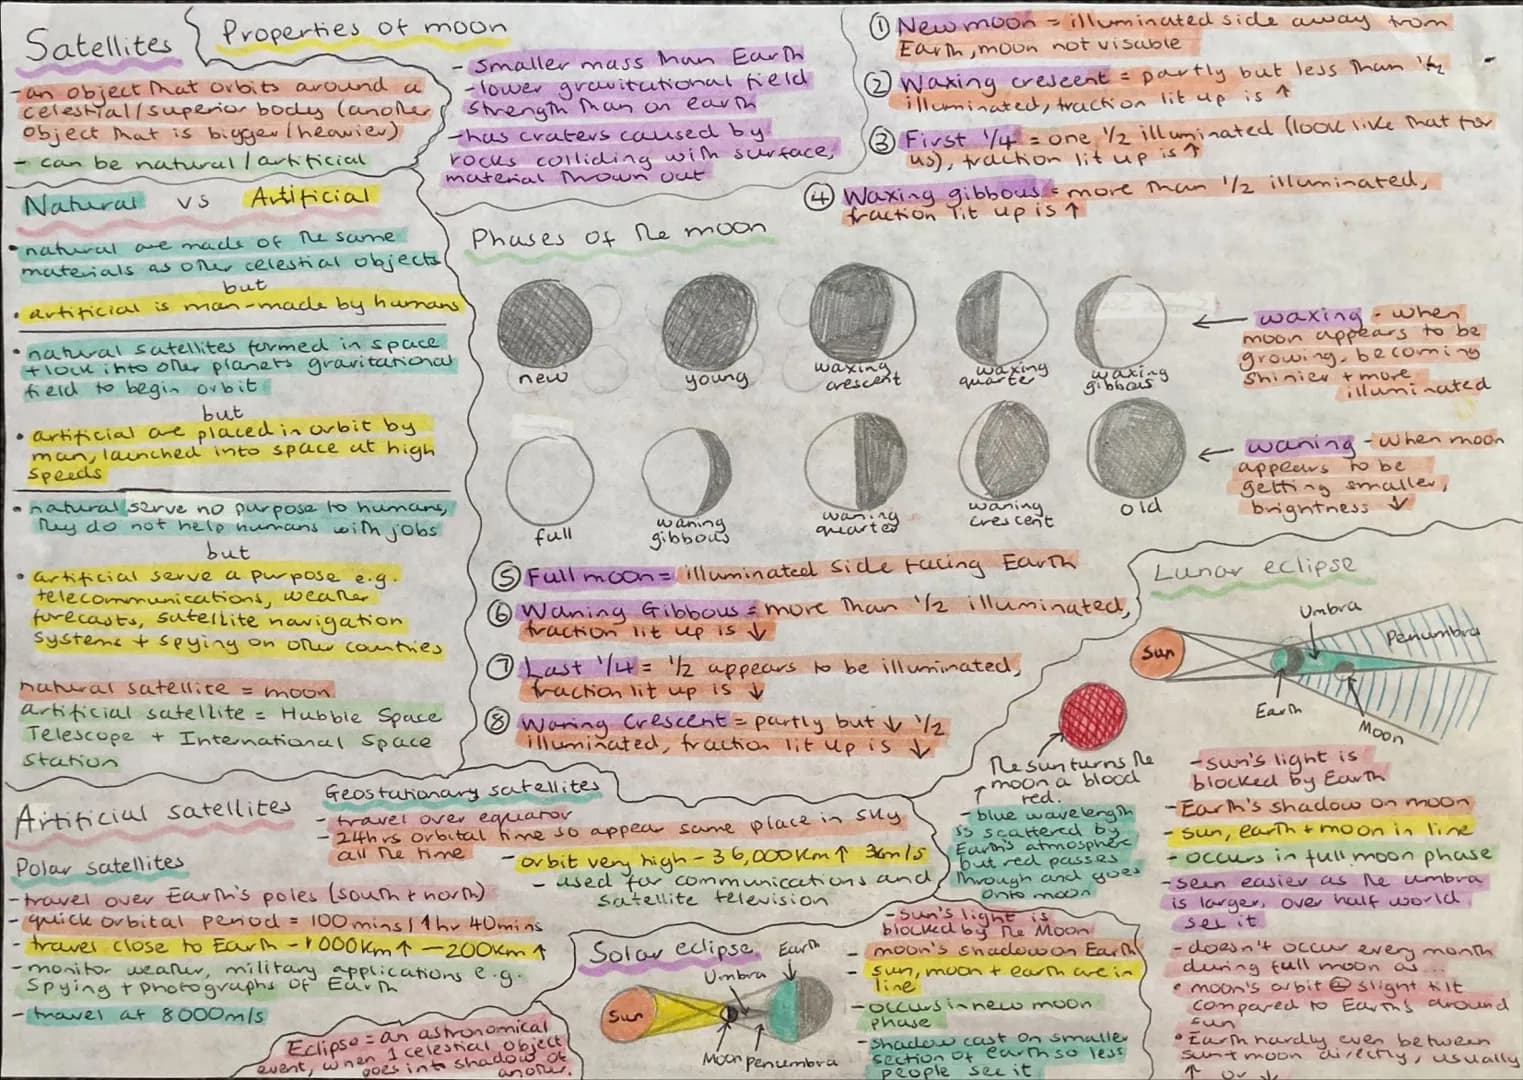 Satellites
-an object that orbits around a
celestial/superior body (another
object that is bigger/heavier)
- can be natural/artificial
Properties of moon
- smaller mass than Earth
-lower gravitational field
strength than on earth
-has craters caused by
rocks colliding with surface,
material thrown out
① New moon = illuminated side away from
Earth, moon not visable
② Waxing crescent = partly but less than 1/2
illuminated, fraction lit up is ↑
③ First 1/4 = one 1/2 illuminated (look like that for
us), fraction lit up is ↑
④ Waxing gibbous = more than 1/2 illuminated,
fraction lit up is ↑
Natural vs Artificial
• natural are made of the same
materials as other celestial objects
but
• artificial is man-made by humans
• natural satellites formed in space
+ lock into other planets gravitational
field to begin orbit
but
• artificial are placed in orbit by
man, launched into space at high
speeds
• natural serve no purpose to humans,
they do not help humans with jobs
but
• artificial serve a purpose e.g.
telecommunications, weather
forecasts, satellite navigation
systems + spying on other countries
natural satellite = moon
artificial satellite = Hubble Space
Telescope + International Space
Station
Phases of the moon
new
young
waxing
crescent
waxing
quarter
waxing
gibbous
← waxing - when
moon appears to be
growing, becoming
shinier + more
illuminated
full
waning
gibbous
waning
quarter
waning
crescent
old
← waning - when moon
appears to be
getting smaller,
brightness ↓
⑤ Full moon = illuminated side facing Earth
⑥ Waning Gibbous = more than 1/2 illuminated,
fraction lit up is ↓
⑦ Last 1/4 = 1/2 appears to be illuminated,
fraction lit up is ↓
⑧ Waning Crescent = partly but ↓ 1/2
illuminated, fraction lit up is ↓
Lunar eclipse
Umbra
Penumbra
Sun
Earth
Moon
The sun turns the
moon a blood
red.
- blue wavelength
is scattered by
Earth's atmosphere
but red passes
through and goes
onto moon
-sun's light is
blocked by Earth
-Earth's shadow on moon
-sun, earth + moon in line
- occurs in full moon phase
-seen easier as the umbra
is larger, over half world
see it
-doesn't occur every month
during full moon as...
• moon's orbit @ slight tilt
compared to Earth's around
sun
• Earth hardly even between
sun + moon directly, usually
↑ or ↓
Artificial satellites
Polar satellites
-travel over Earth's poles (south + north)
-quick orbital period = 100 mins / 1hr 40mins
-travel close to Earth - 1000km ↑ - 200km ↑
-monitor weather, military applications e.g.
spying + photographs of Earth
-travel at 8000m/s
Geostationary satellites
- travel over equator
- 24hrs orbital time so appear same place in sky
all the time
-orbit very high - 36,000km ↑ 3km/s
- used for communications and
satellite television
Eclipse = an astronomical
event, when 1 celestial object
goes into shadow of
another.
Solar eclipse
Earth
Umbra
Sun
Moon
penumbra
-sun's light is
blocked by the Moon
- moon's shadow on Earth
- sun, moon + earth are in
line
-occurs in new moon
phase
-shadow cast on smaller
section of earth so less
people see it